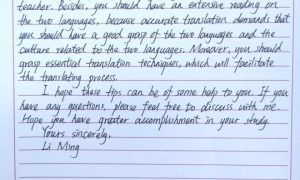 teacher. Besides, you should have an extensive reading on
the two languages, because accurate translation demands that
you should have a good grasp of the two languages and the
culture related to the two languages. Moreover, you should
grasp essential translation techniques, which will facilitate
the translating process.
I hope these tips can be of some help to you. If you
have any questions, please feel free to discuss with me.
Hope you have greater accomplishment in your study.
Yours sincerely,
Li Ming